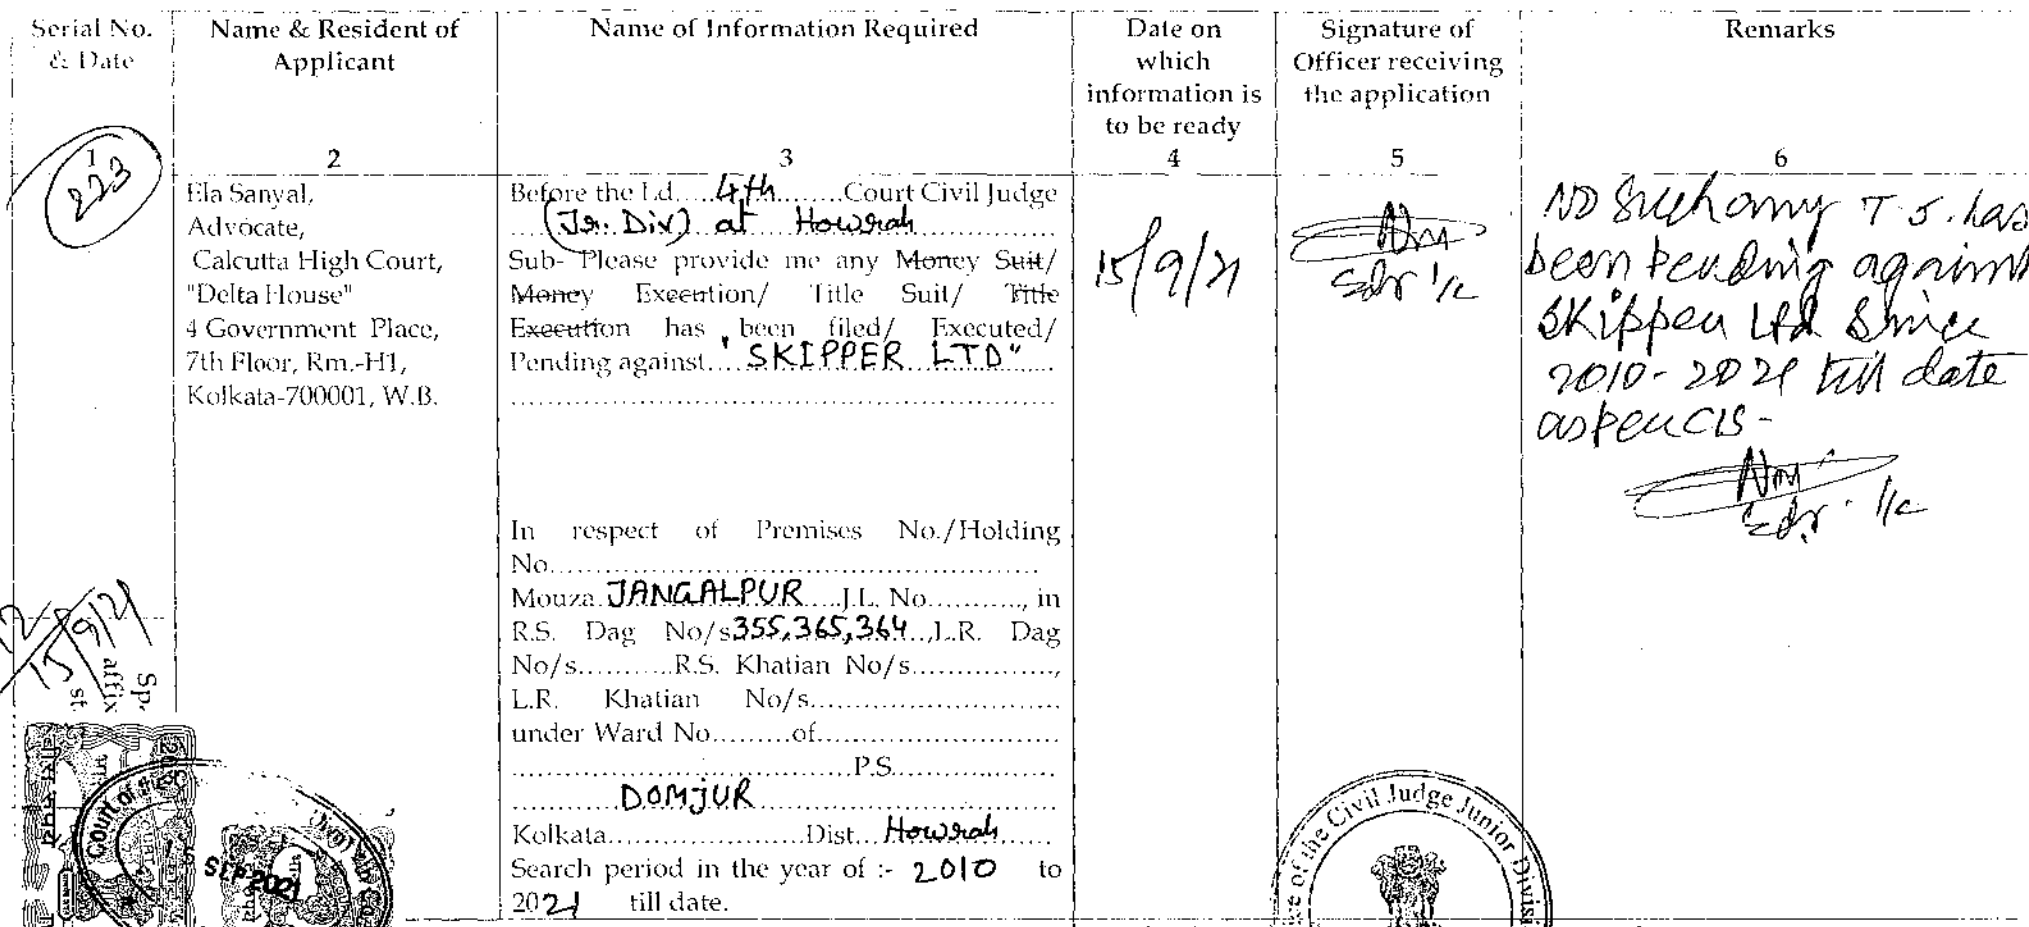 Serial No.
& Date
Name & Resident of
Applicant
Name of Information Required
Date on
which
information is
to be ready
Signature of
Officer receiving
the application
Remarks
1
2
3
4
5
6
223
Ela Sanyal,
Advocate,
Calcutta High Court,
"Delta House"
4 Government Place,
7th Floor, Rm.-H1,
Kolkata-700001, W.B.
Before the Ld.....4th.........Court Civil Judge
(Jr. Div) at Howrah
Sub- Please provide me any Money Suit/
Money Execution/ Title Suit/ Title
Execution has been filed/ Executed/
Pending against "SKIPPER LTD"
In respect of Premises No./Holding
No.
Mouza JANGALPUR J.L. No..........., in
R.S. Dag No/s 355, 365, 364 ..,L.R. Dag
No/s...........R.S. Khatian No/s................,
L.R. Khatian No/s
under Ward No.........of
P.S.
DOMJUR
Kolkata......................Dist. Howrah
Search period in the year of :- 2010 to
2021 till date.
15/9/21
No such any T.S. has
been pending against
Skipper Ltd since
2010-2021 till date
as per CIS-
15/9/21
Sp.
affix
st
Court of the
SEP 2021
of the Civil Judge Junior Divisi